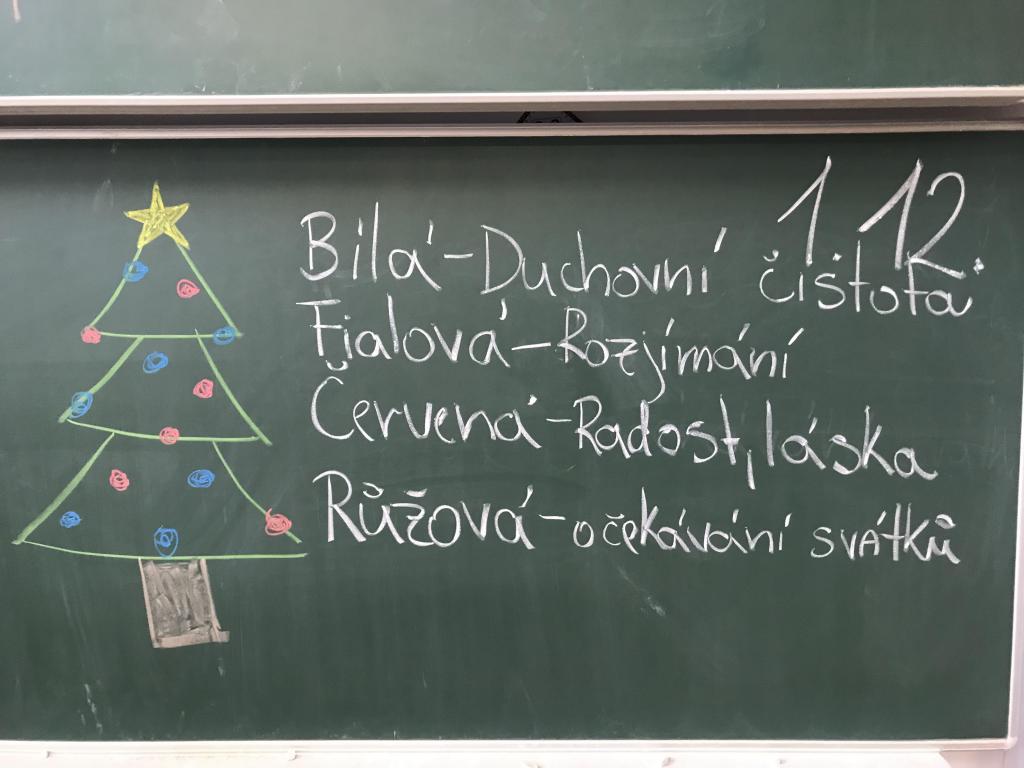 1. 12.
Bílá - Duchovní čistota
Fialová - Rozjímání
Červená - Radost, láska
Růžová - očekávání svátků